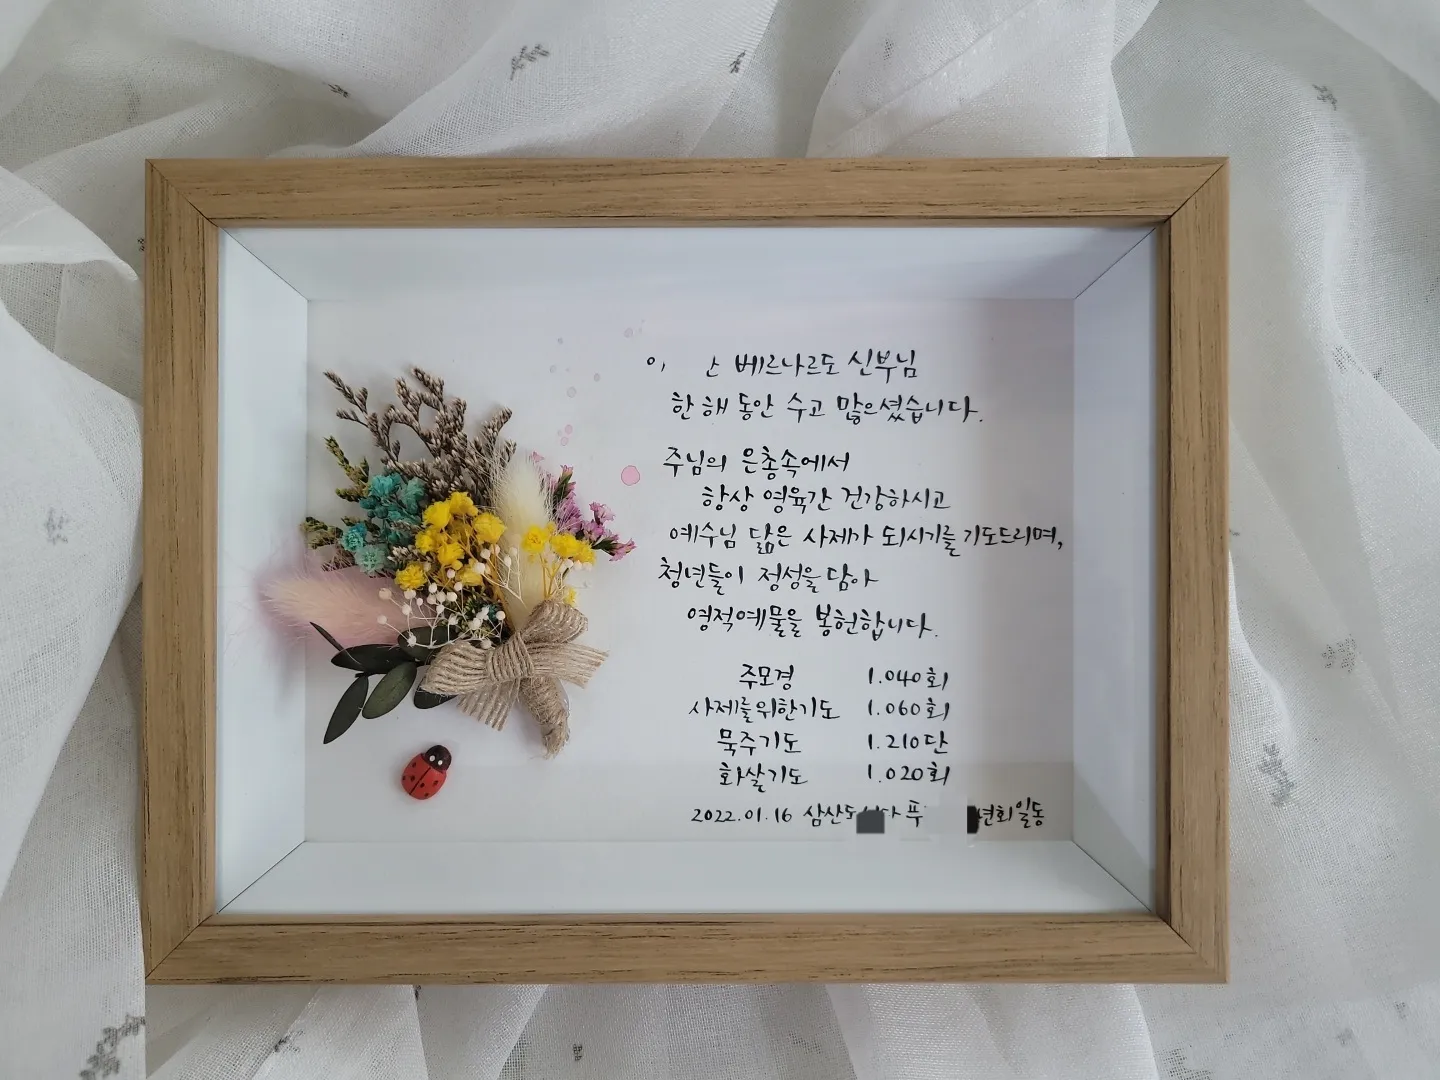 베르나르도 신부님
한 해 동안 수고 많으셨습니다.
주님의 은총속에서
항상 영육간 건강하시고
예수님 닮은 사제가 되시기를 기도드리며,
청년들이 정성을 담아
영적예물을 봉헌합니다.
주모경 1.040회
사제를위한기도 1.060회
묵주기도 1.210단
화살기도 1.020회
2022.01.16 일동